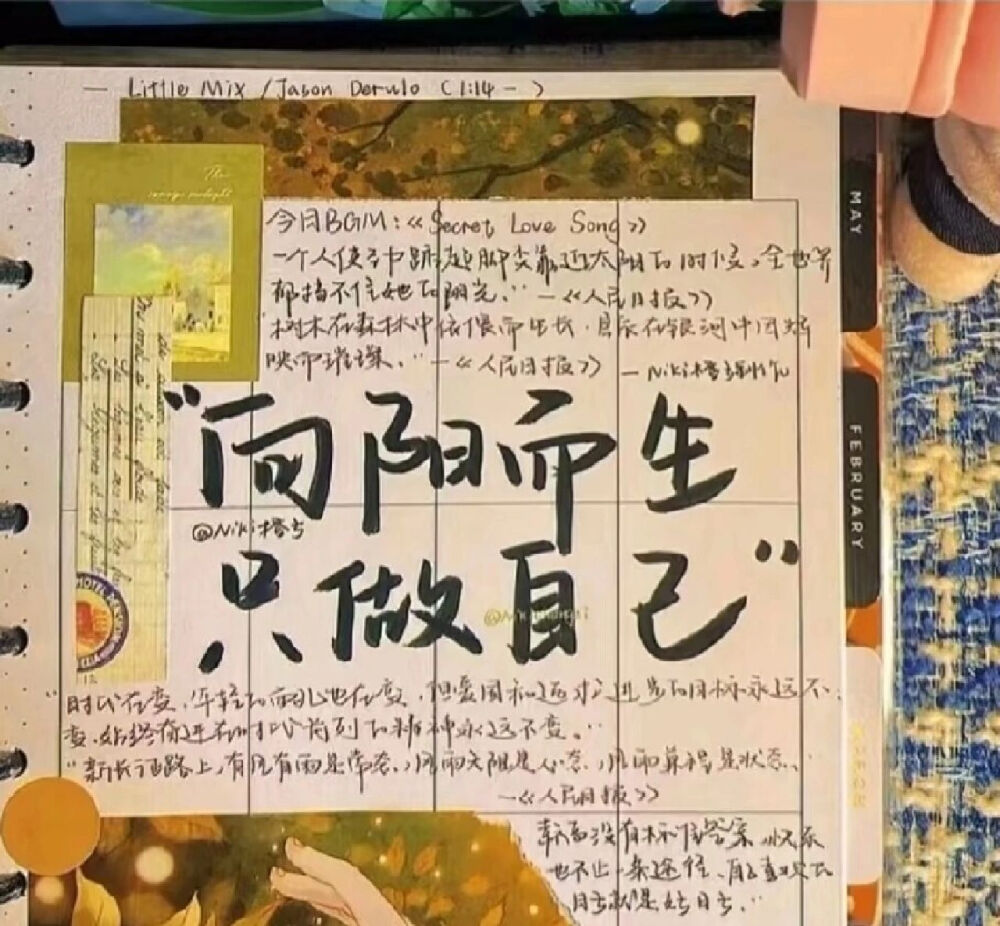 — Little Mix / Jason Derulo (1:14 - )
The
今日BGM:《Secret Love Song》
一个人使劲踮起脚尖靠近太阳的时候,全世界
都挡不住她的阳光。" —《人民日报》
树木在森林中依偎而生长,星辰在银河中因辉
映而璀璨。" —《人民日报》 — Niki橙
"向阳而生
@Niki橙
只做自己"
"时代在变,年轻的面孔也在变,但爱国和追求进步的目标永远不
变,始终奋进在时代前列的精神永远不变。"
"新长征路上,有风有雨是常态,风雨无阻是心态,风雨兼程是状态。"
—《人民日报》
没有标准答案,快乐
也不止一条途径,
自己就是好自己。"
MAY
FEBRUARY
HOTEL